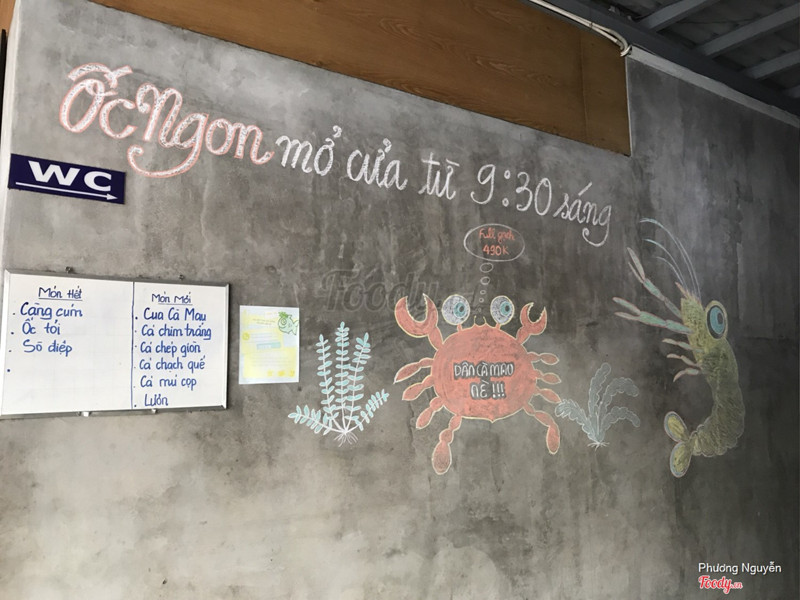 Ốc Ngon mở cửa từ 9:30 sáng
WC
Món Hết
. Càng cúm
. Ốc tỏi
. Sò điệp
.
Món Mới
. Cua Cà Mau
. Cá chim trắng
. Cá chép giòn
. Cá chạch quế
. Cá mú cọp
. Lươn
Full gạch
490K
DÂN CÀ MAU
NÈ!!!
Foody
Phương Nguyễn
Foody.vn